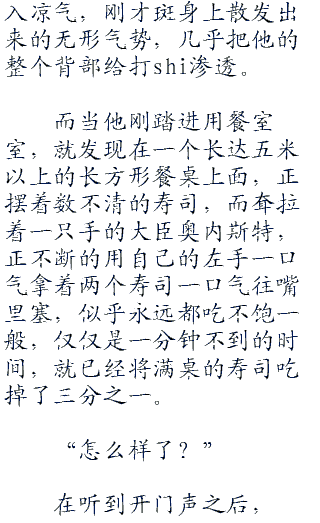 入凉气，刚才斑身上散发出
来的无形气势，几乎把他的
整个背部给打shi渗透。
而当他刚踏进用餐室
室，就发现在一个长达五米
以上的长方形餐桌上面，正
摆着数不清的寿司，而耷拉
着一只手的大臣奥内斯特，
正不断的用自己的左手一口
气拿着两个寿司一口气往嘴
里塞，似乎永远都吃不饱一
般，仅仅是一分钟不到的时
间，就已经将满桌的寿司吃
掉了三分之一。
“怎么样了？”
在听到开门声之后，